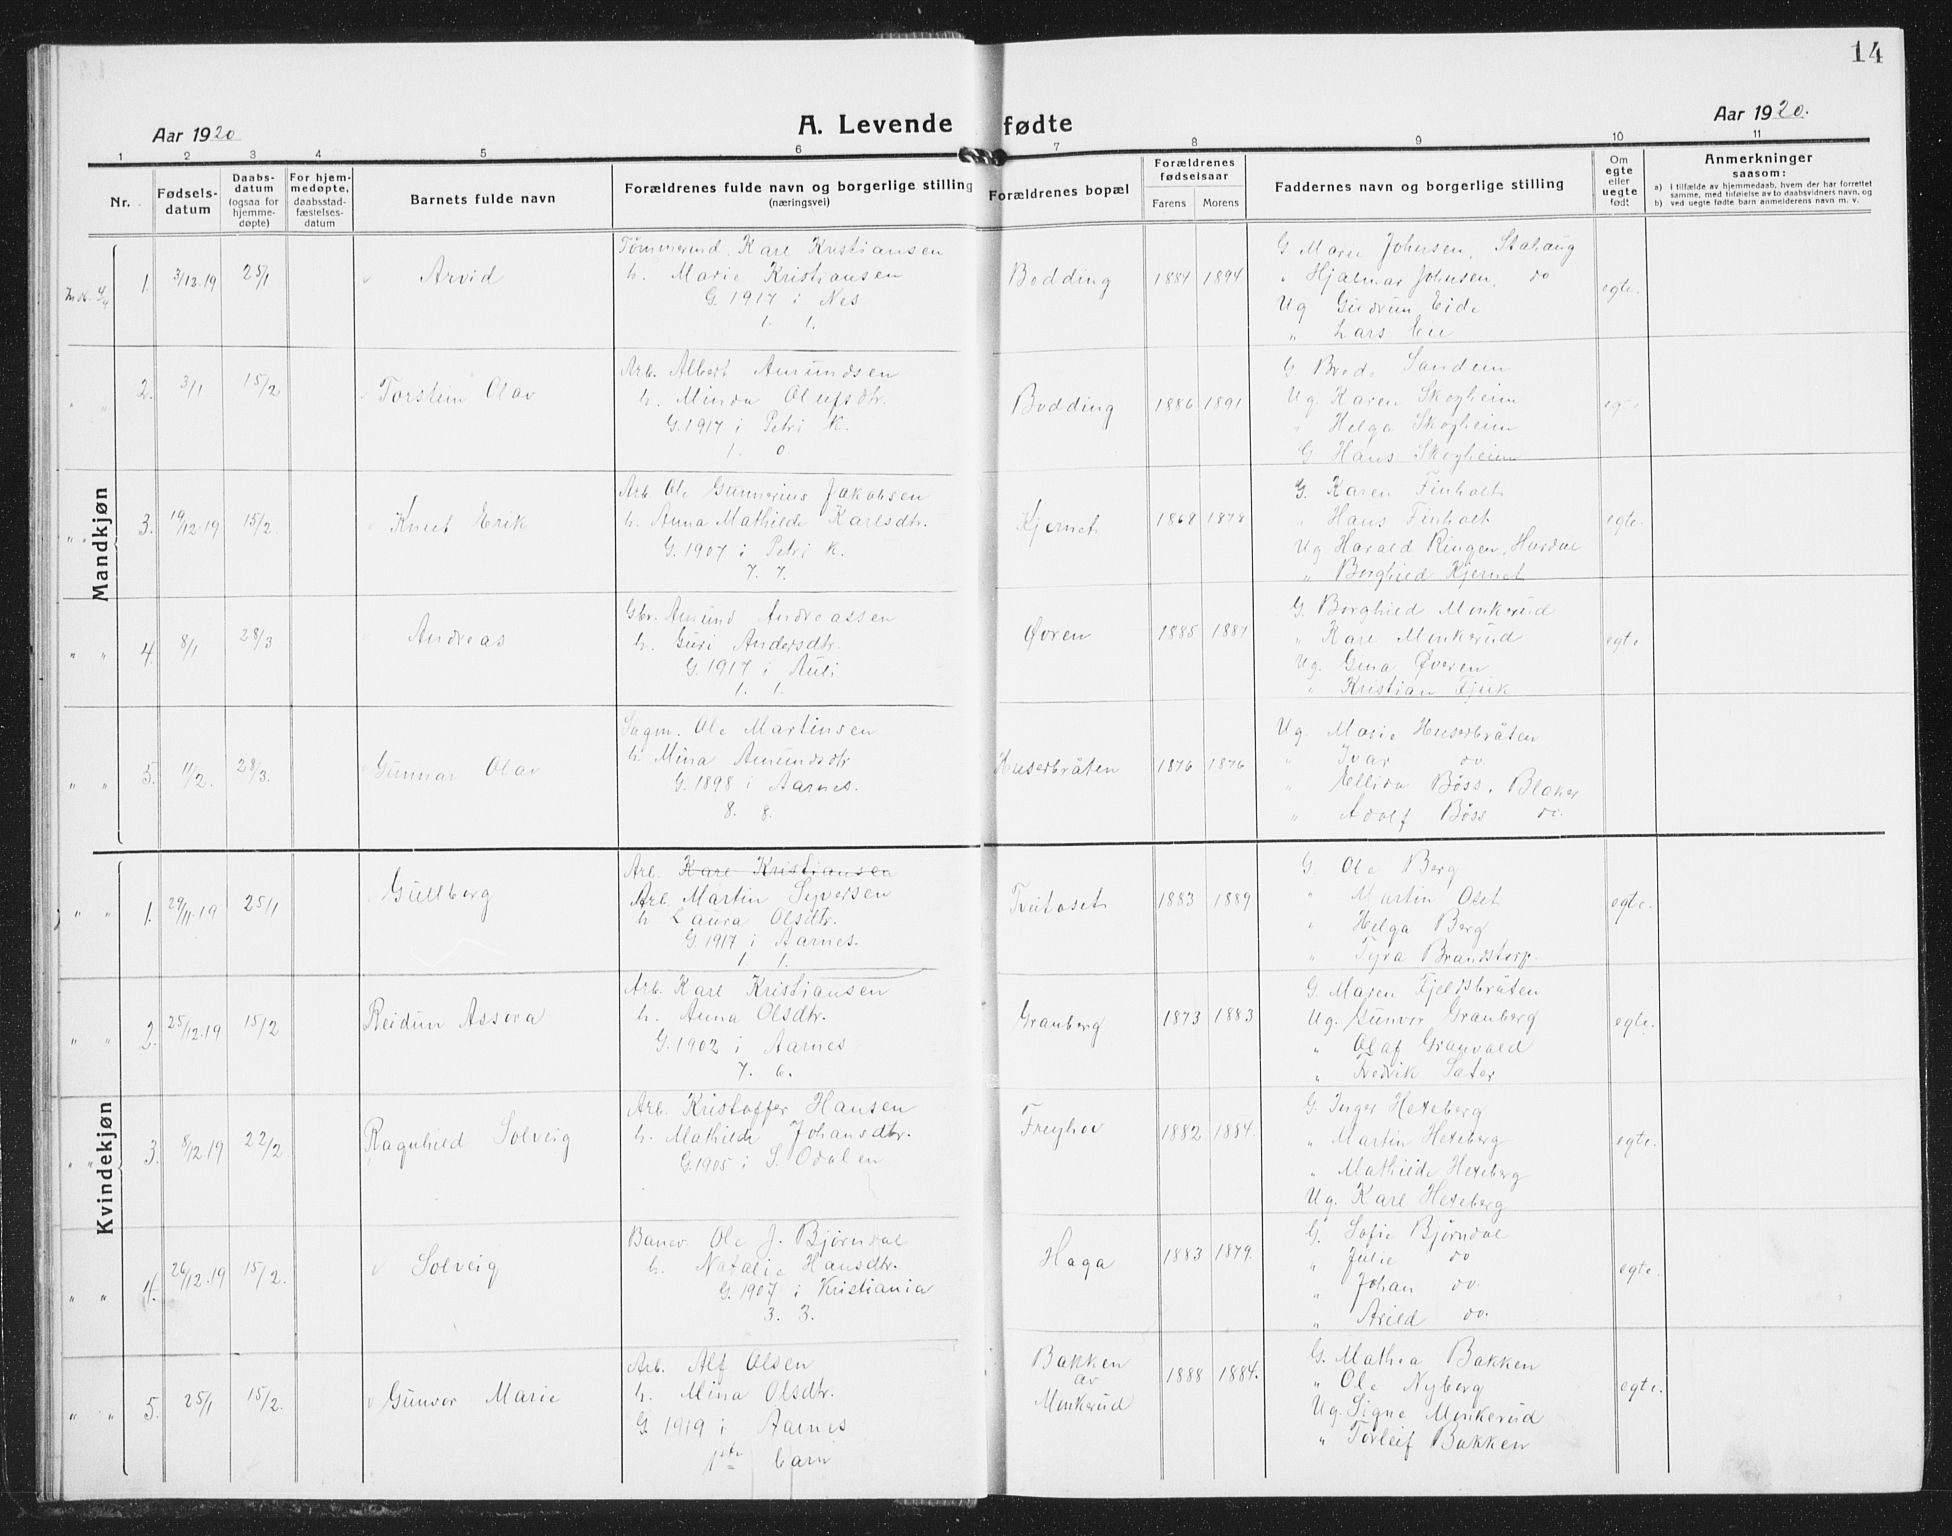 14
Aar 1920
A. Levende fødte
Aar 1920.
1 2 3 4 5 6 7 8 9 10 11
Nr.
Fødselsdatum
Daabsdatum (ogsaa for hjemmedøpte)
For hjemmedøpte, daabsstadfæstelsesdatum
Barnets fulde navn
Forældrenes fulde navn og borgerlige stilling (næringsvei)
Forældrenes bopæl
Forældrenes fødselsaar
Farens Morens
Faddernes navn og borgerlige stilling
Om egte eller uegte født
Anmerkninger saasom:
a) i tilfælde av hjemmedaab, hvem der har forrettet samme, med tilføielse av to daabsvidners navn, og
b) ved uegte fødte barn anmelderens navn m. v.
Mandkjøn
1. 3/12.19 25/1 Arvid
Tømmermd. Karl Kristiansen
h. Marie Kristiansen
G. 1917 i Nes
1. 1.
Bodding 1884 1894
G Marie Johnsen, Stahaug
" Hjalmar Johnsen, do
Ug Gudrun Eide
" Lars Eie
egte.
2. 3/1 15/2 Torstein Olav
Arb. Albert Amundsen
h. Minda Olufsdtr.
G. 1917 i Petri K.
1. 0.
Bodding 1886 1891
G Brede Sandem
Ug. Karen Skogheim
" Helga Skogheim
G Hans Skogheim
egte
3. 19/12.19 15/2. Knut Erik
Arb. Ole Gunnerius Jakobsen
h. Anna Mathilde Karlsdtr.
G. 1907 i Petri K.
7. 7.
Kjernet 1868 1878
G. Karen Finholt
" Hans Finholt
Ug Harald Ringen, Hurdal
" Borghild Kjernet
egte.
4. 8/1 28/3 Andreas
Gbr. Amund Andreassen
h. Guri Andersdtr.
G. 1917 i Auli
1. 1.
Øvren 1885 1887
G. Borghild Monkerud
" Karl Monkerud
Ug. Gina Øveren
" Kristian Fjuk
egte
5. 11/2. 28/3. Gunnar Olav
Sagm. Ole Martinsen
h. Mina Amundsdtr
G. 1898 i Aarnes.
8. 8.
Huserbråten 1876 1876
Ug. Marie Huserbråten
" Ivar do.
" Ellida Bøss, Blaker
" Adolf Bøss do.
Kvindekjøn
1. 29/11.19 25/1 Gullborg
Arb. Karl Kristiansen
Arb. Martin Syversen
h Laura Olsdtr.
G. 1917 i Aarnes.
1. 1.
Tvitoset 1883 1889
G. Ole Berg
" Martin Olet
" Helga Berg
" Tyra Brandstorp.
egte.
2. 25/12.19 15/2 Reidun Assora
Arb. Karl Kristiansen
h. Anna Olsdtr.
G. 1902 i Aarnes
7. 6.
Granberg 1873 1883
G. Maren Fjeldsbråten
Ug. Gunvor Granberg
" Olaf Granvold
" Fredrik Sæter
egte.
3. 8/12.19 22/2 Ragnhild Solveig
Arb. Kristoffer Hansen
h. Mathilde Johansdtr.
G. 1905 i S. Odalen
Freyhov 1882 1884.
G. Inger Hexeberg
" Martin Hexeberg
" Mathilde Hexeberg
Ug. Karl Hexeberg
egte.
4. 26/12.19 15/2. Solveig
Banev. Ole J. Bjørndal
h. Natalie Hansdtr.
G. 1907 i Kristiania
3. 3.
Haga 1883 1879.
G. Sofie Bjørndal
" Julie do
" Johan do.
" Arild do.
egte.
5. 25/1 15/2. Gunvor Marie
Arb. Alf Olsen
h. Mina Olsdtr.
G. 1919 i Aarnes
1ste barn
Bakken av Monkerud 1888 1884.
G. Mathea Bakken
" Ole Nyberg
Ug. Signe Monkerud
" Torleif Bakken
egte.